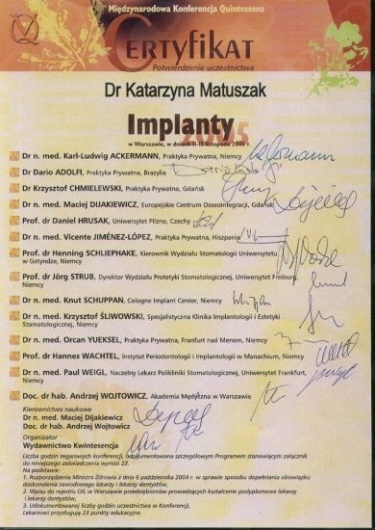 Międzynarodowa Konferencja Quintessenz
CERTYFIKAT
Potwierdzenie uczestnictwa
Dr Katarzyna Matuszak
Implanty
2005
w Warszawie, w dniach 11-13 listopada 2005 r.
Dr n. med. Karl-Ludwig ACKERMANN, Praktyka Prywatna, Niemcy
Dr Dario ADOLFI, Praktyka Prywatna, Brazylia
Dr Krzysztof CHMIELEWSKI, Praktyka Prywatna, Gdańsk
Dr n. med. Maciej DIJAKIEWICZ, Europejskie Centrum Osseointegracji, Gdańsk
Prof. dr Daniel HRUSAK, Uniwersytet Pilzno, Czechy
Dr n. med. Vicente JIMÉNEZ-LÓPEZ, Praktyka Prywatna, Hiszpania
Prof. dr Henning SCHLIEPHAKE, Kierownik Wydziału Stomatologii Uniwersytetu
w Getyndze, Niemcy
Prof. dr Jörg STRUB, Dyrektor Wydziału Protetyki Stomatologicznej, Uniwersytet Freiburg,
Niemcy
Dr n. med. Knut SCHUPPAN, Cologne Implant Center, Niemcy
Dr n. med. Krzysztof ŚLIWOWSKI, Specjalistyczna Klinika Implantologii i Estetyki
Stomatologicznej, Niemcy
Dr n. med. Orcan YUEKSEL, Praktyka Prywatna, Frankfurt nad Menem, Niemcy
Prof. dr Hannes WACHTEL, Instytut Periodontologii i Implantologii w Monachium, Niemcy
Dr n. med. Paul WEIGL, Naczelny Lekarz Polikliniki Stomatologicznej, Uniwersytet Frankfurt,
Niemcy
Doc. dr hab. Andrzej WOJTOWICZ, Akademia Medyczna w Warszawie
Kierownictwo naukowe
Dr n. med. Maciej Dijakiewicz
Doc. dr hab. Andrzej Wojtowicz
Organizator
Wydawnictwo Kwintesencja
Liczba godzin zegarowych konferencji, udokumentowana szczegółowym Programem stanowiącym załącznik
do niniejszego zaświadczenia wynosi 23.
Na podstawie:
1. Rozporządzenia Ministra Zdrowia z dnia 6 października 2004 r. w sprawie sposobu dopełniania obowiązku
doskonalenia zawodowego lekarzy i lekarzy dentystów,
2. Wpisu do rejestru OIL w Warszawie przedsiębiorców prowadzących kształcenie podyplomowe lekarzy
i lekarzy dentystów,
3. Udokumentowanej liczby godzin uczestnictwa w Konferencji,
Lekarzowi przysługują 23 punkty edukacyjne.